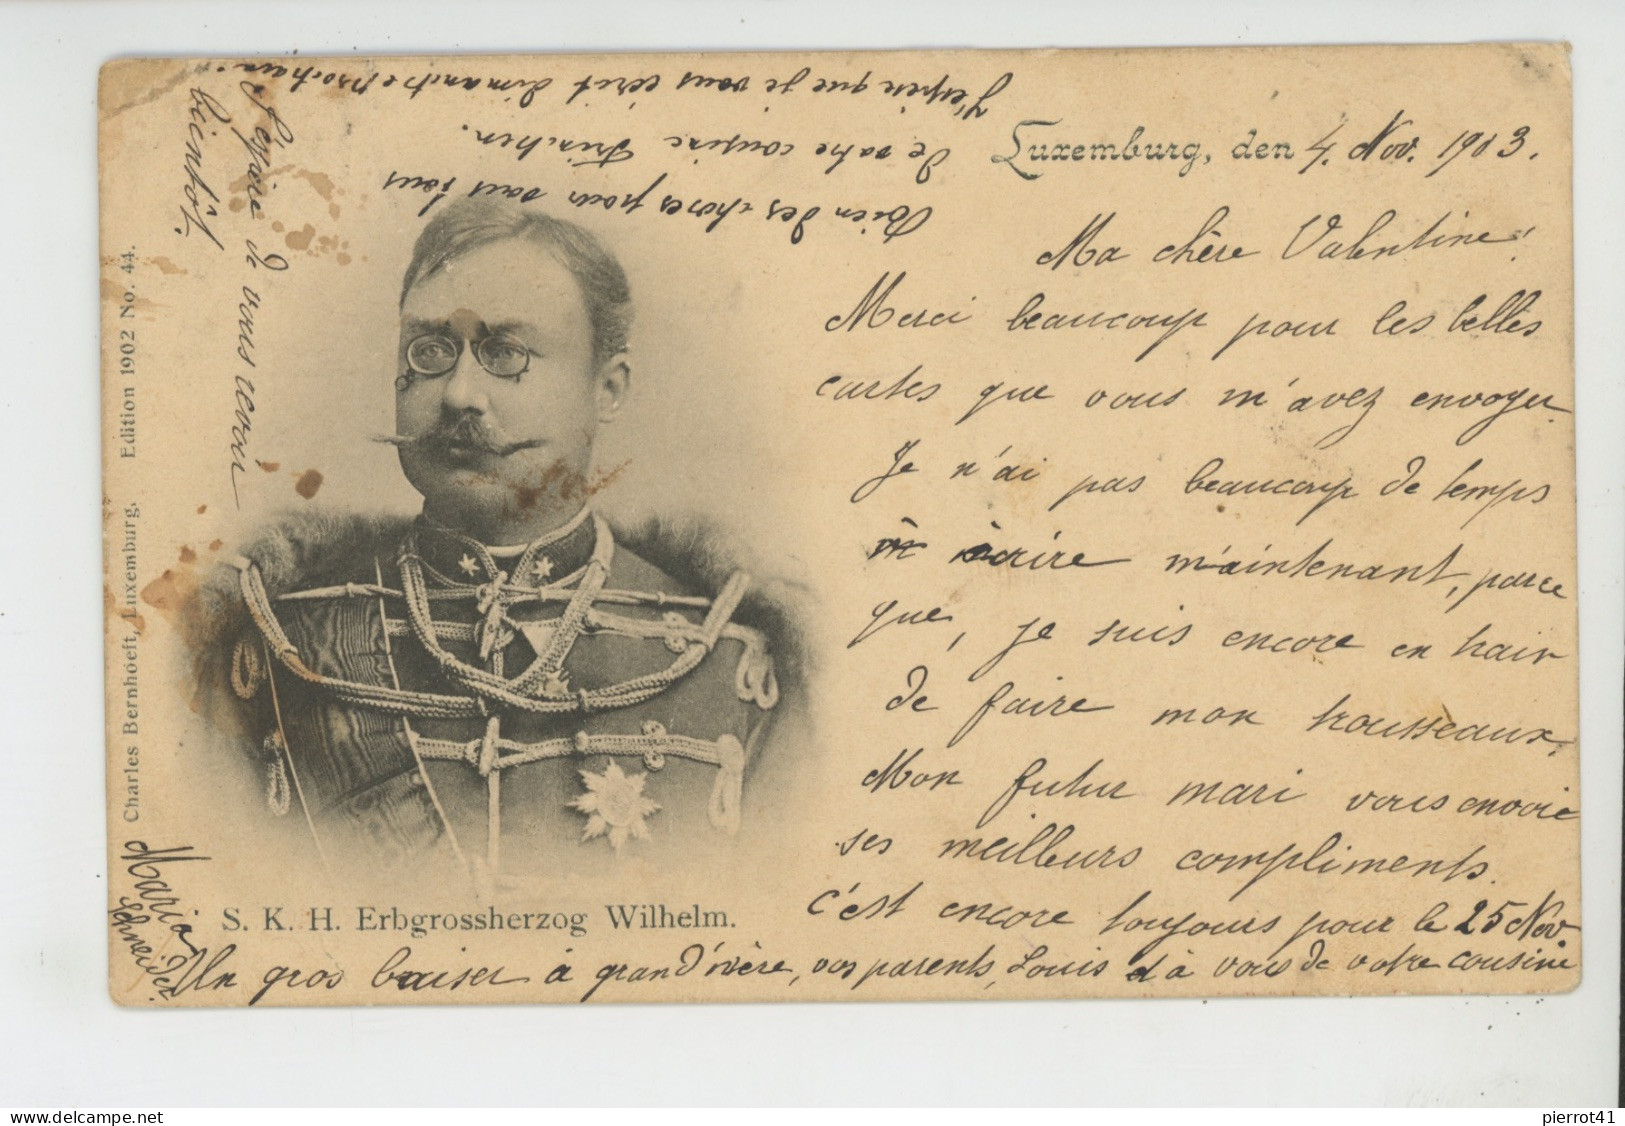 Luxemburg, den 4. Nov. 1903.
Ma chère Valentine!
Merci beaucoup pour les belles
cartes que vous m'avez envoyer
Je n'ai pas beaucoup de temps
à écrire maintenant, parce
que, je suis encore en train
de faire mon trousseaux.
Mon futur mari vous envoie
ses meilleurs compliments.
c'est encore toujours pour le 25 Nov
Un gros baiser à grand'mère, vos parents, Louis et à vous de votre cousine
Maria
Schneider.
J'espère de vous revoir
bientôt.
Bien des choses pour vous tous
de votre cousine
J'espère que je vous écrit dimanche prochain.
S. K. H. Erbgrossherzog Wilhelm.
Charles Bernhoeft, Luxemburg. Edition 1902 No. 44.
www.delcampe.net
pierrot41